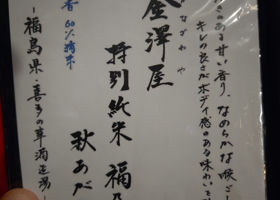 きのある甘い香り、なめらかな喉ご
キレの良さがボディ感のある味わいを
金澤屋
なざわや
特別純米 福乃
秋あが
香 60%精米
－福島県・喜多の華酒造場－